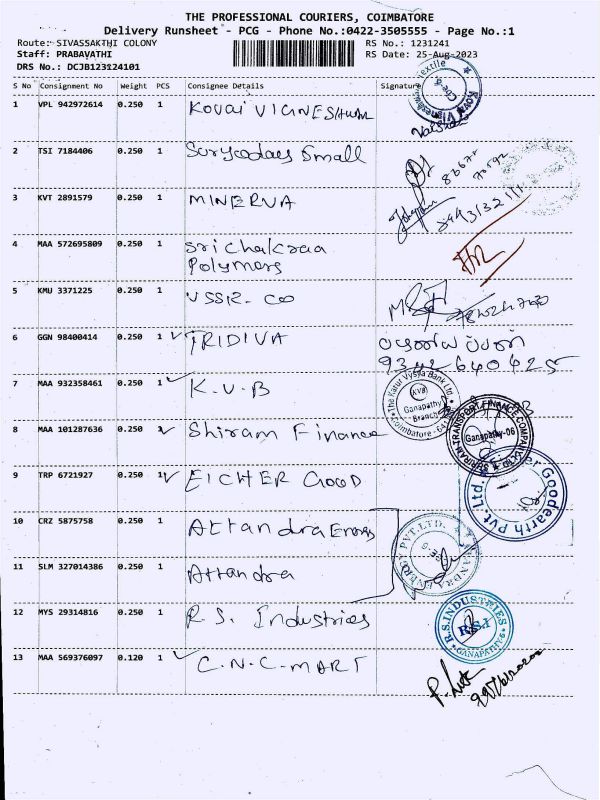 THE PROFESSIONAL COURIERS, COIMBATORE
Delivery Runsheet - PCG - Phone No.:0422-3505555 - Page No.:1
Route: SIVASSAKTHI COLONY
Staff: PRABAVATHI
DRS No.: DCJB123124101
RS No.: 1231241
RS Date: 25-Aug-2023
S No Consignment No Weight PCS Consignee Details Signature
1 VPL 942972614 0.250 1 KOVAI VIGNESHWAR
2 TSI 7184406 0.250 1 Suryodaey Small
3 KVT 2891579 0.250 1 MINERVA
4 MAA 572695809 0.250 1 Sri Chakraa
Polymers
5 KMU 3371225 0.250 1 USSR-CO
6 GGN 98400414 0.250 1 TRIDIVA
9342640425
7 MAA 932358461 0.250 1 K.V.B
The Karur Vysya Bank Ltd.
KVB
Ganapathy
Branch
Coimbatore - 641
8 MAA 101287636 0.250 Shiram Finance
SHRIRAM TRANSPORT FINANCE COMPANY LTD
Ganapathy-06
9 TRP 6721927 0.250 1 EICHER GOOD
Goodearth Pvt. Ltd.
10 CRZ 5875758 0.250 1 Attandra Energy
ENERGY PVT. LTD.
11 SLM 327014386 0.250 1 Attandra
12 MYS 29314816 0.250 1 R.S. Industries
R.S.INDUSTRIES
R.S.I
GANAPATHY
13 MAA 569376097 0.120 1 C.N.C-MART